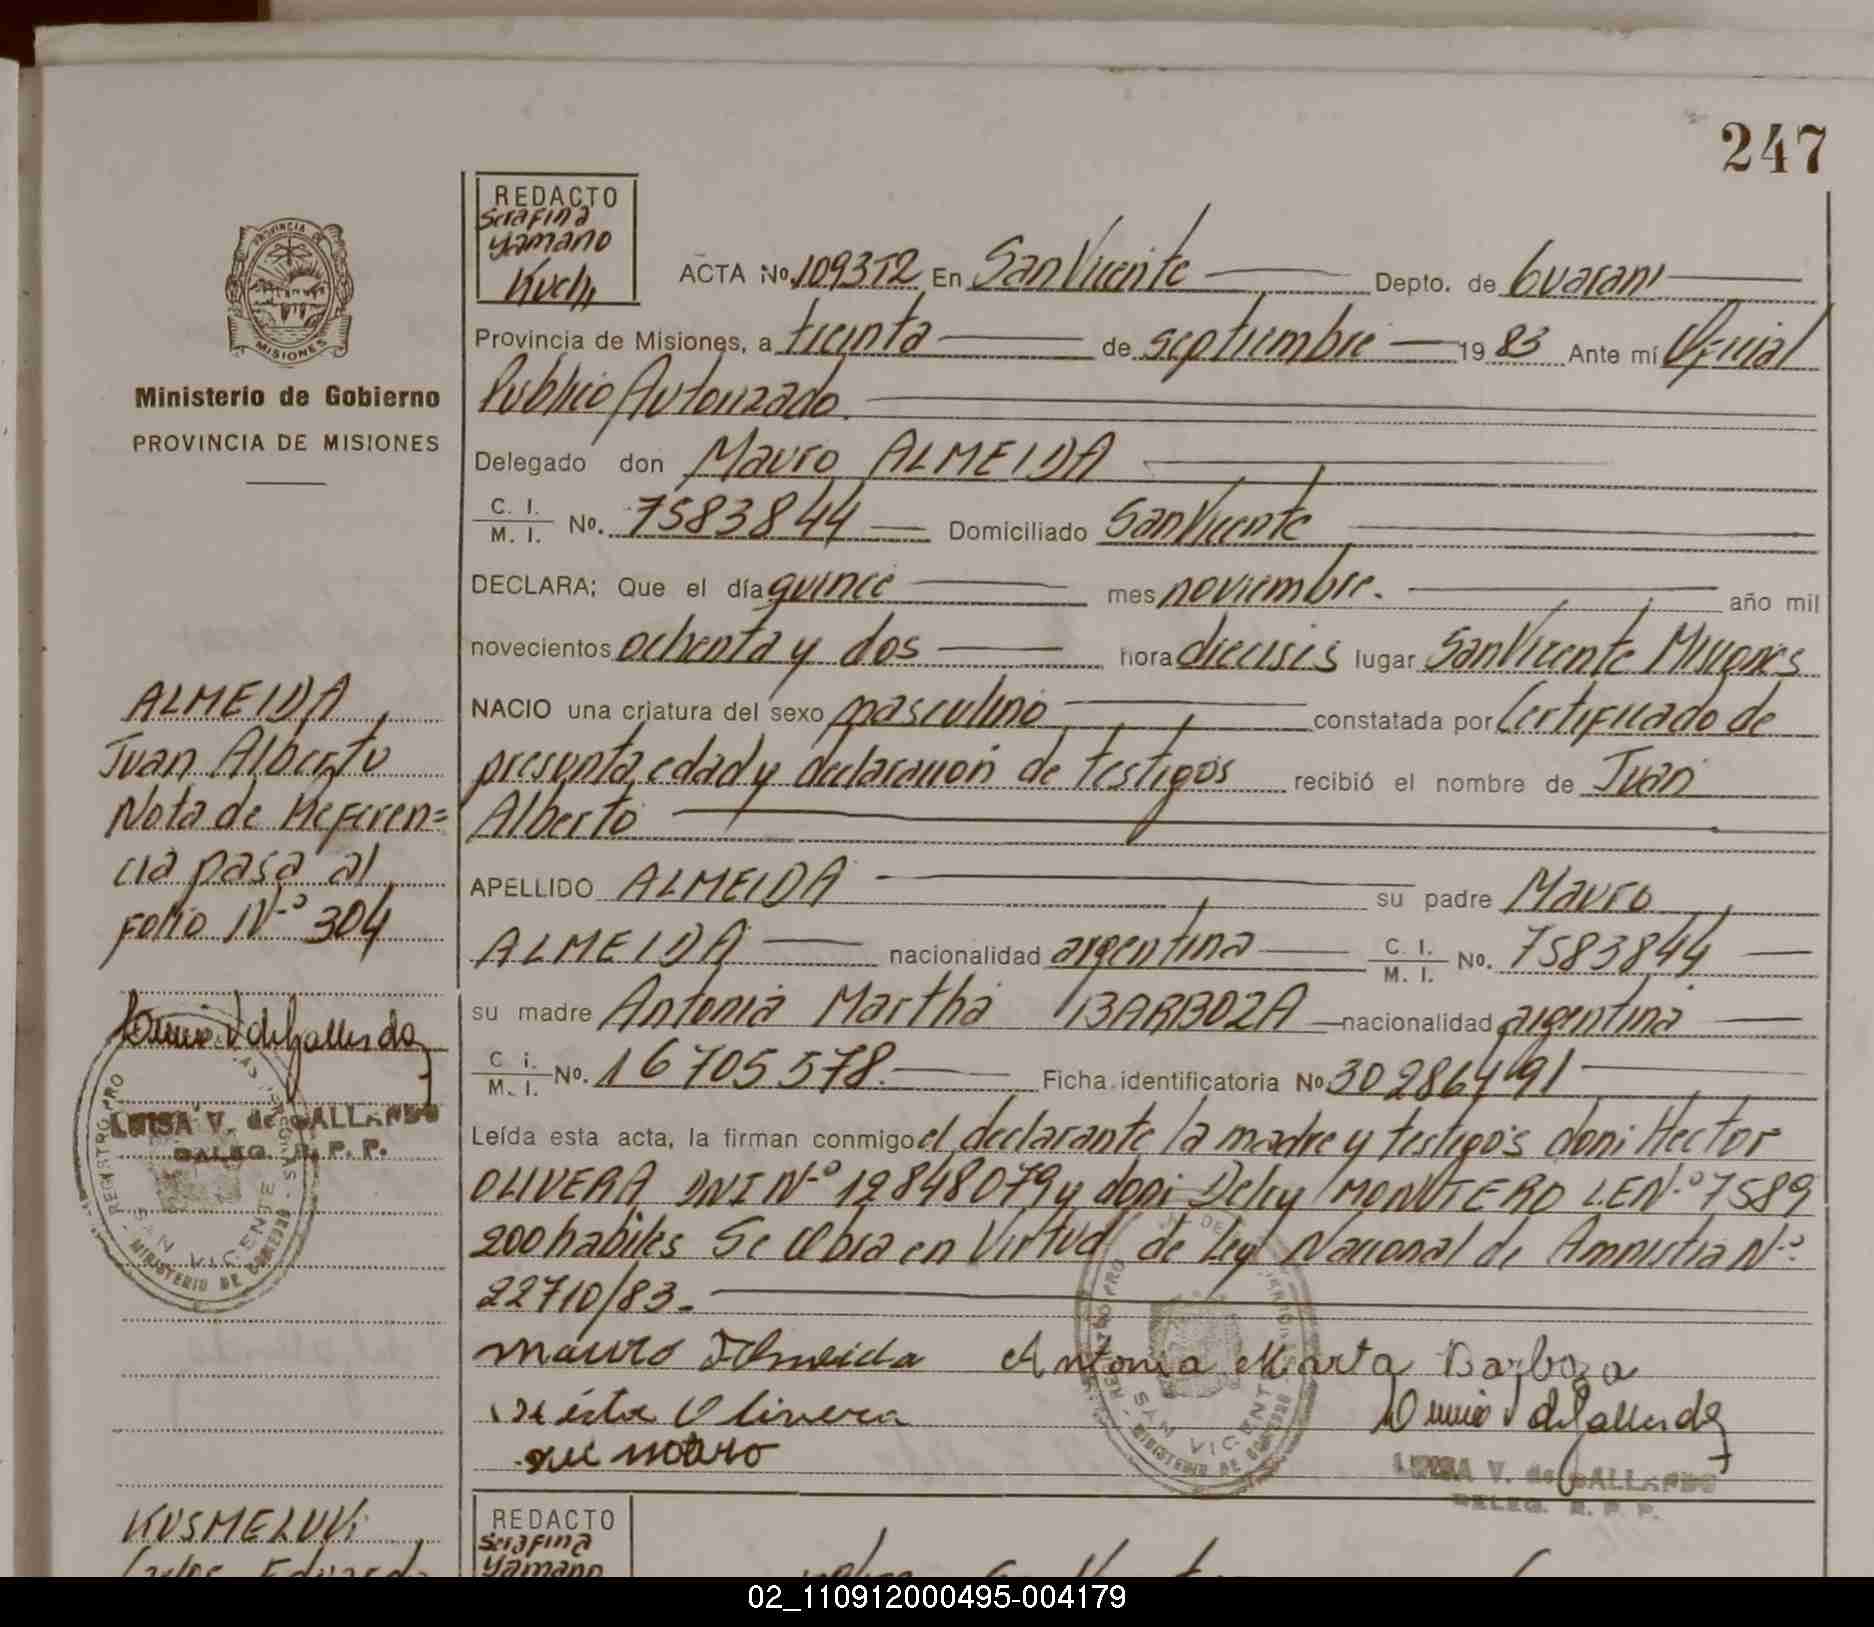 247
REDACTO
Serafina
Yamano
ACTA No. 1093T2 En San Vicente Depto. de Guarani
Provincia de Misiones, a treinta de septiembre 19 83 Ante mí Oficial
Publico Autorizado.
Delegado don Mauro ALMEIDA
C. I.
M. I. No. 7583844 Domiciliado San Vicente
DECLARA; Que el día quince mes noviembre. año mil
novecientos ochenta y dos hora dieciseis lugar San Vicente Misiones
NACIO una criatura del sexo masculino constatada por Certificado de
presunta edad y declaración de testigos recibió el nombre de Juan
Alberto
APELLIDO ALMEIDA su padre Mauro
ALMEIDA nacionalidad argentina C. I.
M. I. No. 7583844
su madre Antonia Martha BARBOZA nacionalidad argentina
C. i.
M. I. No. 16705578. Ficha identificatoria No 30286491
Leída esta acta, la firman conmigo el declarante la madre y testigos don: Hector
OLIVERA DNI N-º 12848079 y don: Delcy MONTERO LE N-º 7589
200 habiles Se labra en Virtud de Ley Nacional de Amnistia N-º
22710/83.
Mauro Almeida Antonia Marta Barboza
Olivera
LUISA V. de GALLARDO
DELEG. R. P. P.
PROVINCIA DE
MISIONES
Ministerio de Gobierno
PROVINCIA DE MISIONES
ALMEIDA
Juan Alberto
Nota de Referen=
cia pasa al
Folio N-º 304
LUISA V. de GALLARDO
DELEG. R. P. P.
SAN VICENTE
MINISTERIO DE GOBIERNO
SAN VICENTE
MINISTERIO DE GOBIERNO
Carlos Eduardo
REDACTO
Serafina
Yamano
02_110912000495-004179